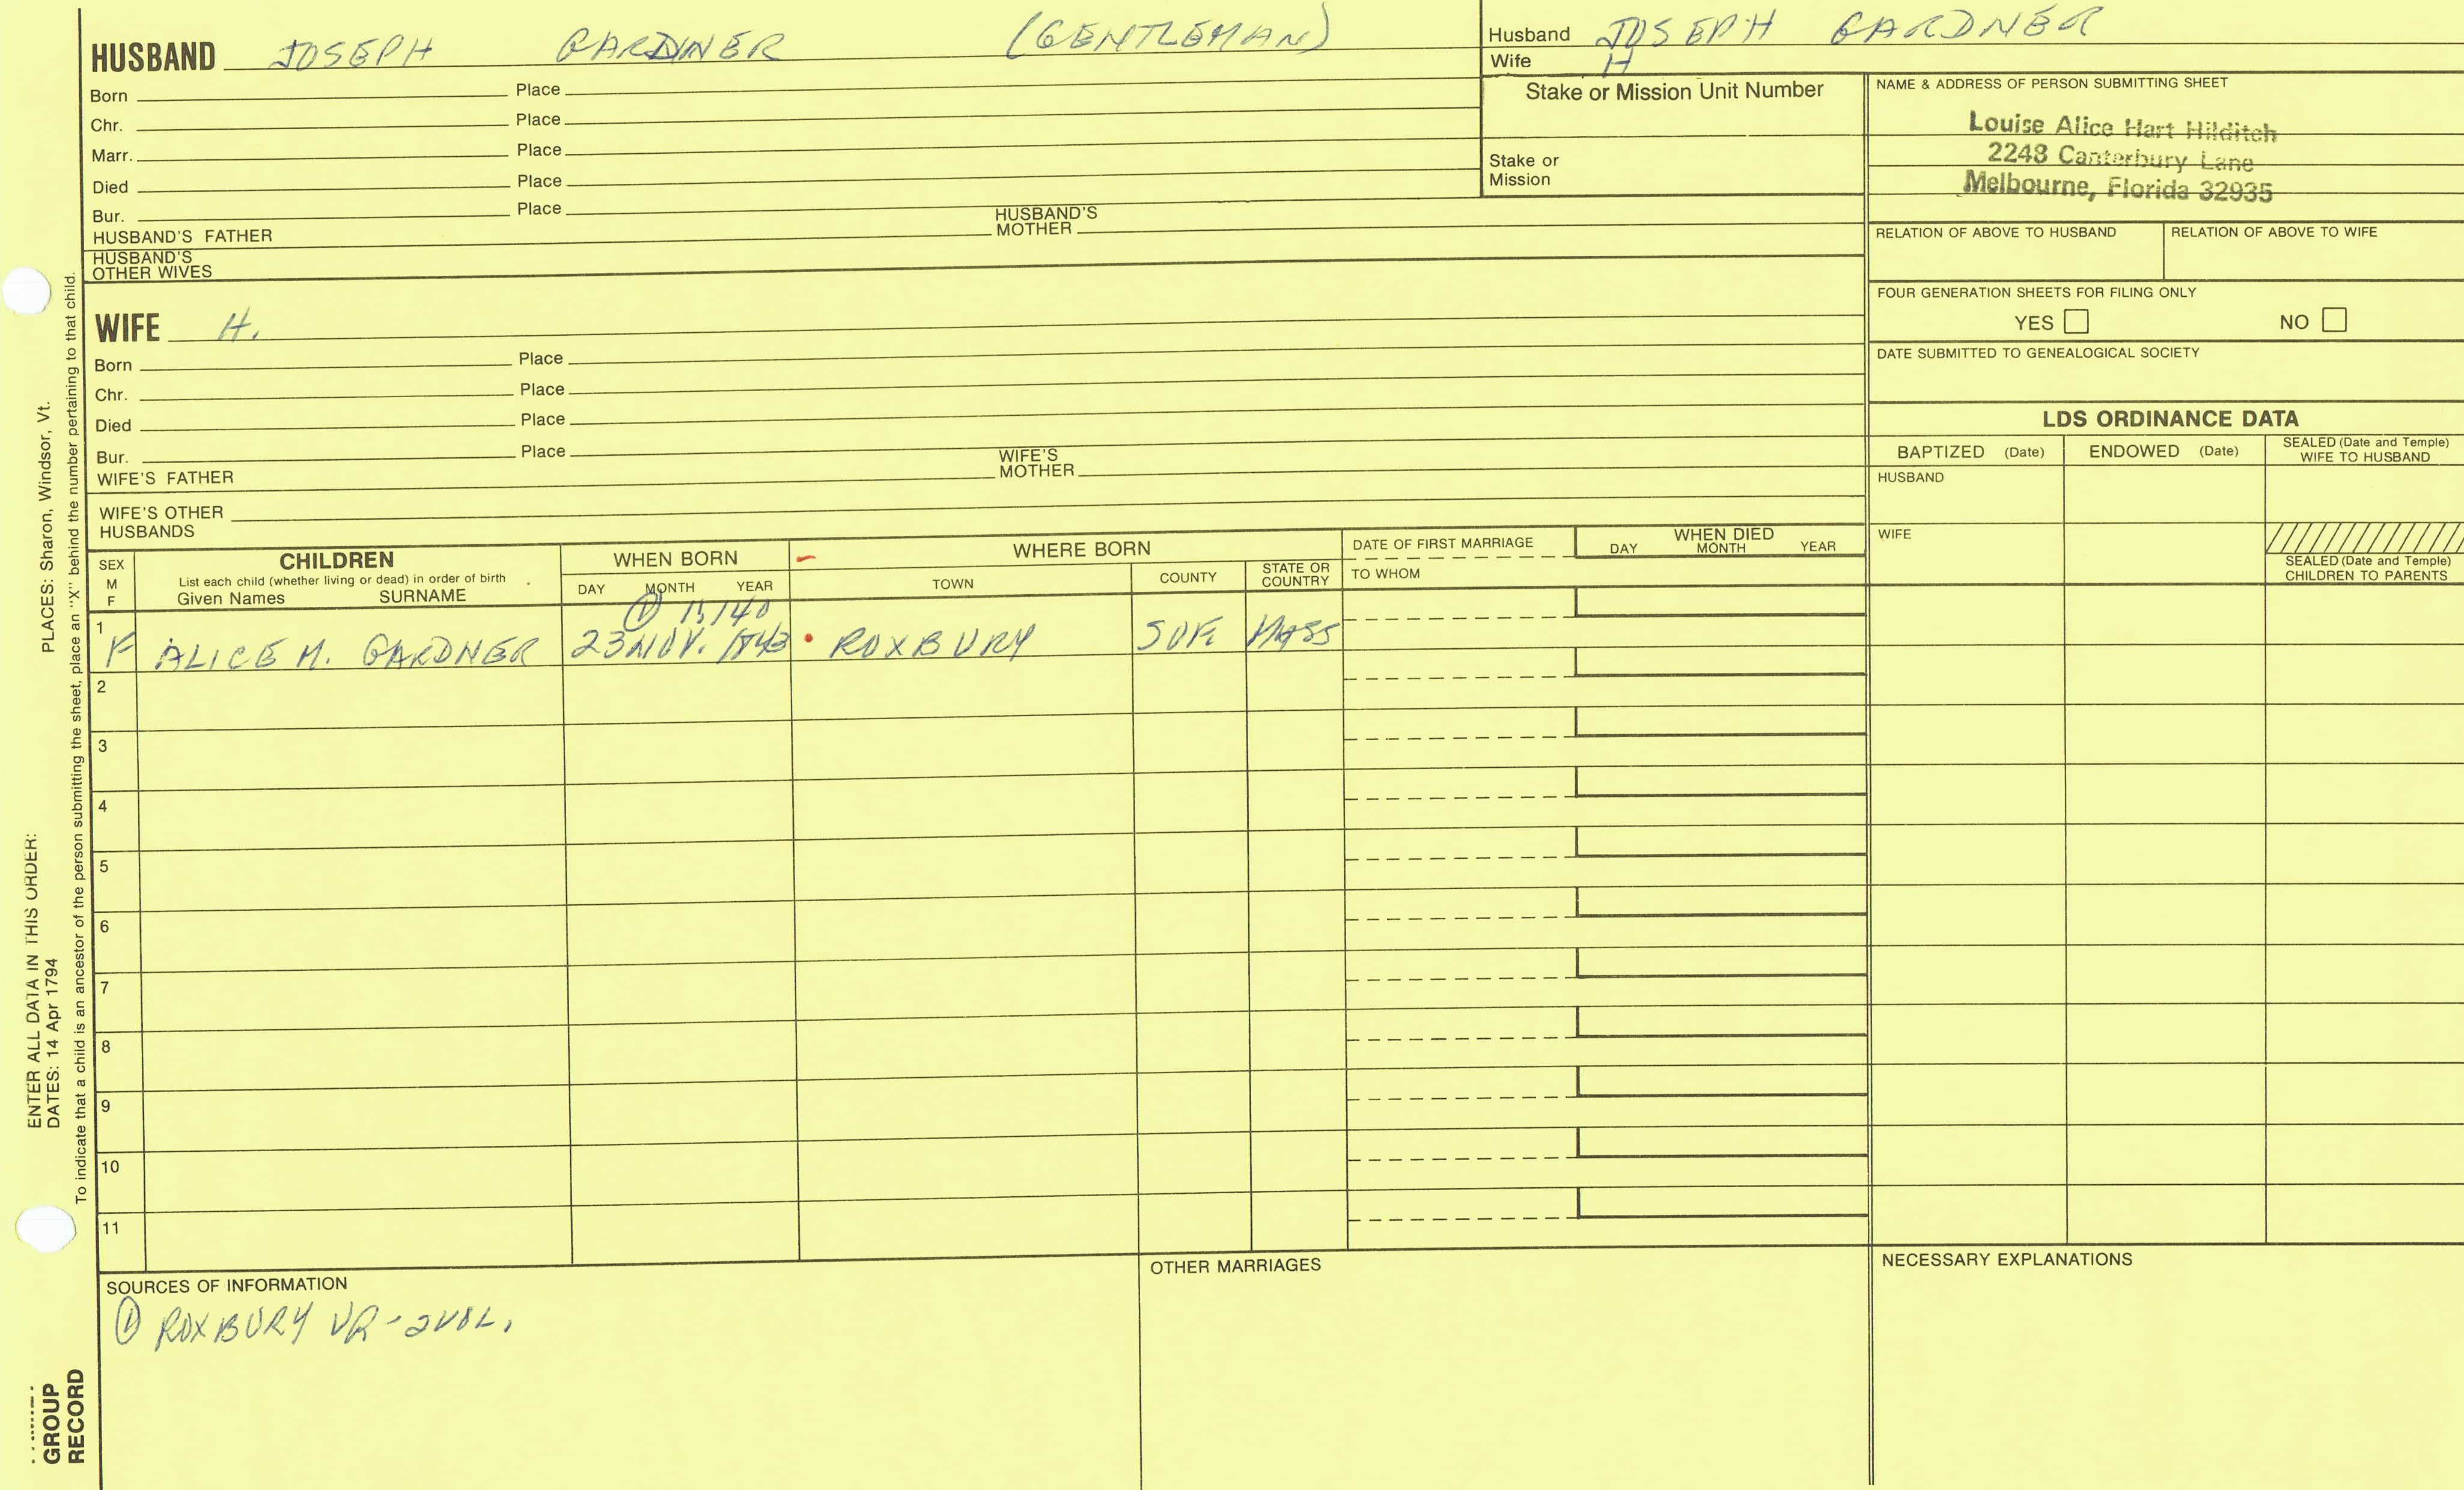 HUSBAND JOSEPH GARDNER (GENTLEMAN)
Born Place
Chr. Place
Marr. Place
Died Place
Bur. Place
HUSBAND'S FATHER HUSBAND'S MOTHER
HUSBAND'S OTHER WIVES
Husband JOSEPH GARDNER
Wife H
Stake or Mission Unit Number
Stake or Mission
NAME & ADDRESS OF PERSON SUBMITTING SHEET
Louise Alice Hart Hilditch
2248 Canterbury Lane
Melbourne, Florida 32935
RELATION OF ABOVE TO HUSBAND RELATION OF ABOVE TO WIFE
FOUR GENERATION SHEETS FOR FILING ONLY
YES NO
DATE SUBMITTED TO GENEALOGICAL SOCIETY
WIFE H.
Born Place
Chr. Place
Died Place
Bur. Place
WIFE'S FATHER WIFE'S MOTHER
WIFE'S OTHER HUSBANDS
LDS ORDINANCE DATA
BAPTIZED (Date) ENDOWED (Date) SEALED (Date and Temple) WIFE TO HUSBAND
HUSBAND
WIFE
SEALED (Date and Temple) CHILDREN TO PARENTS
SEX M F
CHILDREN
List each child (whether living or dead) in order of birth
Given Names SURNAME
WHEN BORN
DAY MONTH YEAR
WHERE BORN
TOWN COUNTY STATE OR COUNTRY
DATE OF FIRST MARRIAGE
TO WHOM
WHEN DIED
DAY MONTH YEAR
① 1, 140
1 F ALICE M. GARDNER 23 NOV. 1843 ROXBURY SUF. MASS
2
3
4
5
6
7
8
9
10
11
SOURCES OF INFORMATION
① ROXBURY VR-2VOL.
OTHER MARRIAGES
NECESSARY EXPLANATIONS
ENTER ALL DATA IN THIS ORDER:
DATES: 14 Apr 1794
PLACES: Sharon, Windsor, Vt.
To indicate that a child is an ancestor of the person submitting the sheet, place an "X" behind the number pertaining to that child.
GROUP
RECORD